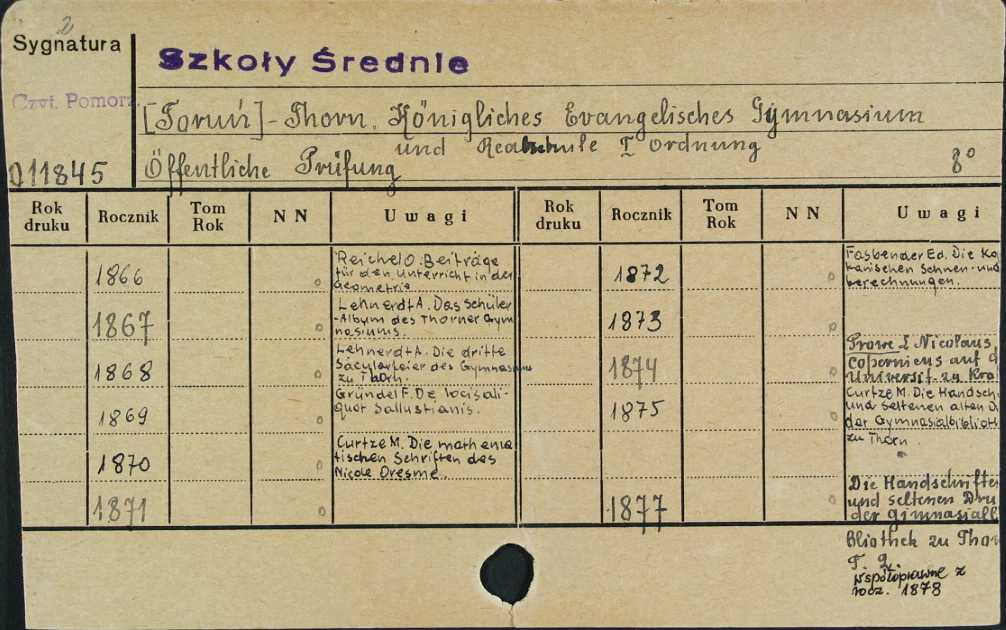 2
Sygnatura
Szkoły Średnie
Czyt. Pomorz.
[Toruń] - Thorn. Königliches Evangelisches Gymnasium
und Realschule I Ordnung
011845
Öffentliche Prüfung
8°
Rok druku Rocznik Tom Rok NN Uwagi Rok druku Rocznik Tom Rok NN Uwagi
1866 o Reichel O. Beiträge
für den Unterricht in der
Geometrie
1867 o Lehnerdt A. Das Schüler
-Album des Thorner Gym
nasiums.
1868 o Lehnerdt A. Die dritte
Säcularfeier des Gymnasiums
zu Thorn.
1869 o Gründel F. De locis ali-
quot Sallustianis.
1870 o Curtze M. Die mathema
tischen Schriften des
Nicole Oresme.
1871 o
1872 o Fasbender Ed. Die Ko
tanischen Sehnen- und
berechnungen.
1873 o
1874 o Prowe L Nicolaus
Copernicus auf d
Universit. zu Kra
1875 o Curtze M. Die Handsch
und seltenen alten D
der Gymnasialbiblioth
zu Thorn.
1877 o Die Handschrifte
und seltenen Dru
der gimnasialb
bliothek zu Thor
T. 2.
współoprawne z
rocz. 1878